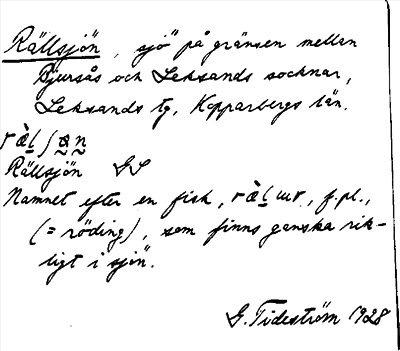 Rällsjön, sjö på gränsen mellan
Bjursås och Leksands socknar,
Leksands tg, Kopparbergs län.
ràl̲ʃøn
Rällsjön GS
Namnet efter en fisk, ràl̲ɯr, f. pl.,
(= röding), som finns ganska rik-
ligt i sjön.
G. Tideström 1928